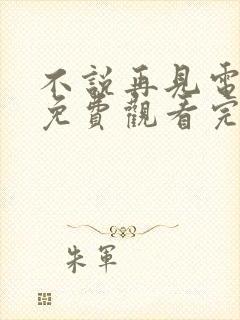 不說再見電
免費觀看完
朱軍